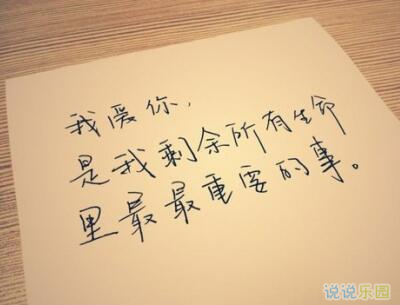 我爱你，
是我剩余所有生命
里最最重要的事。
说说乐园